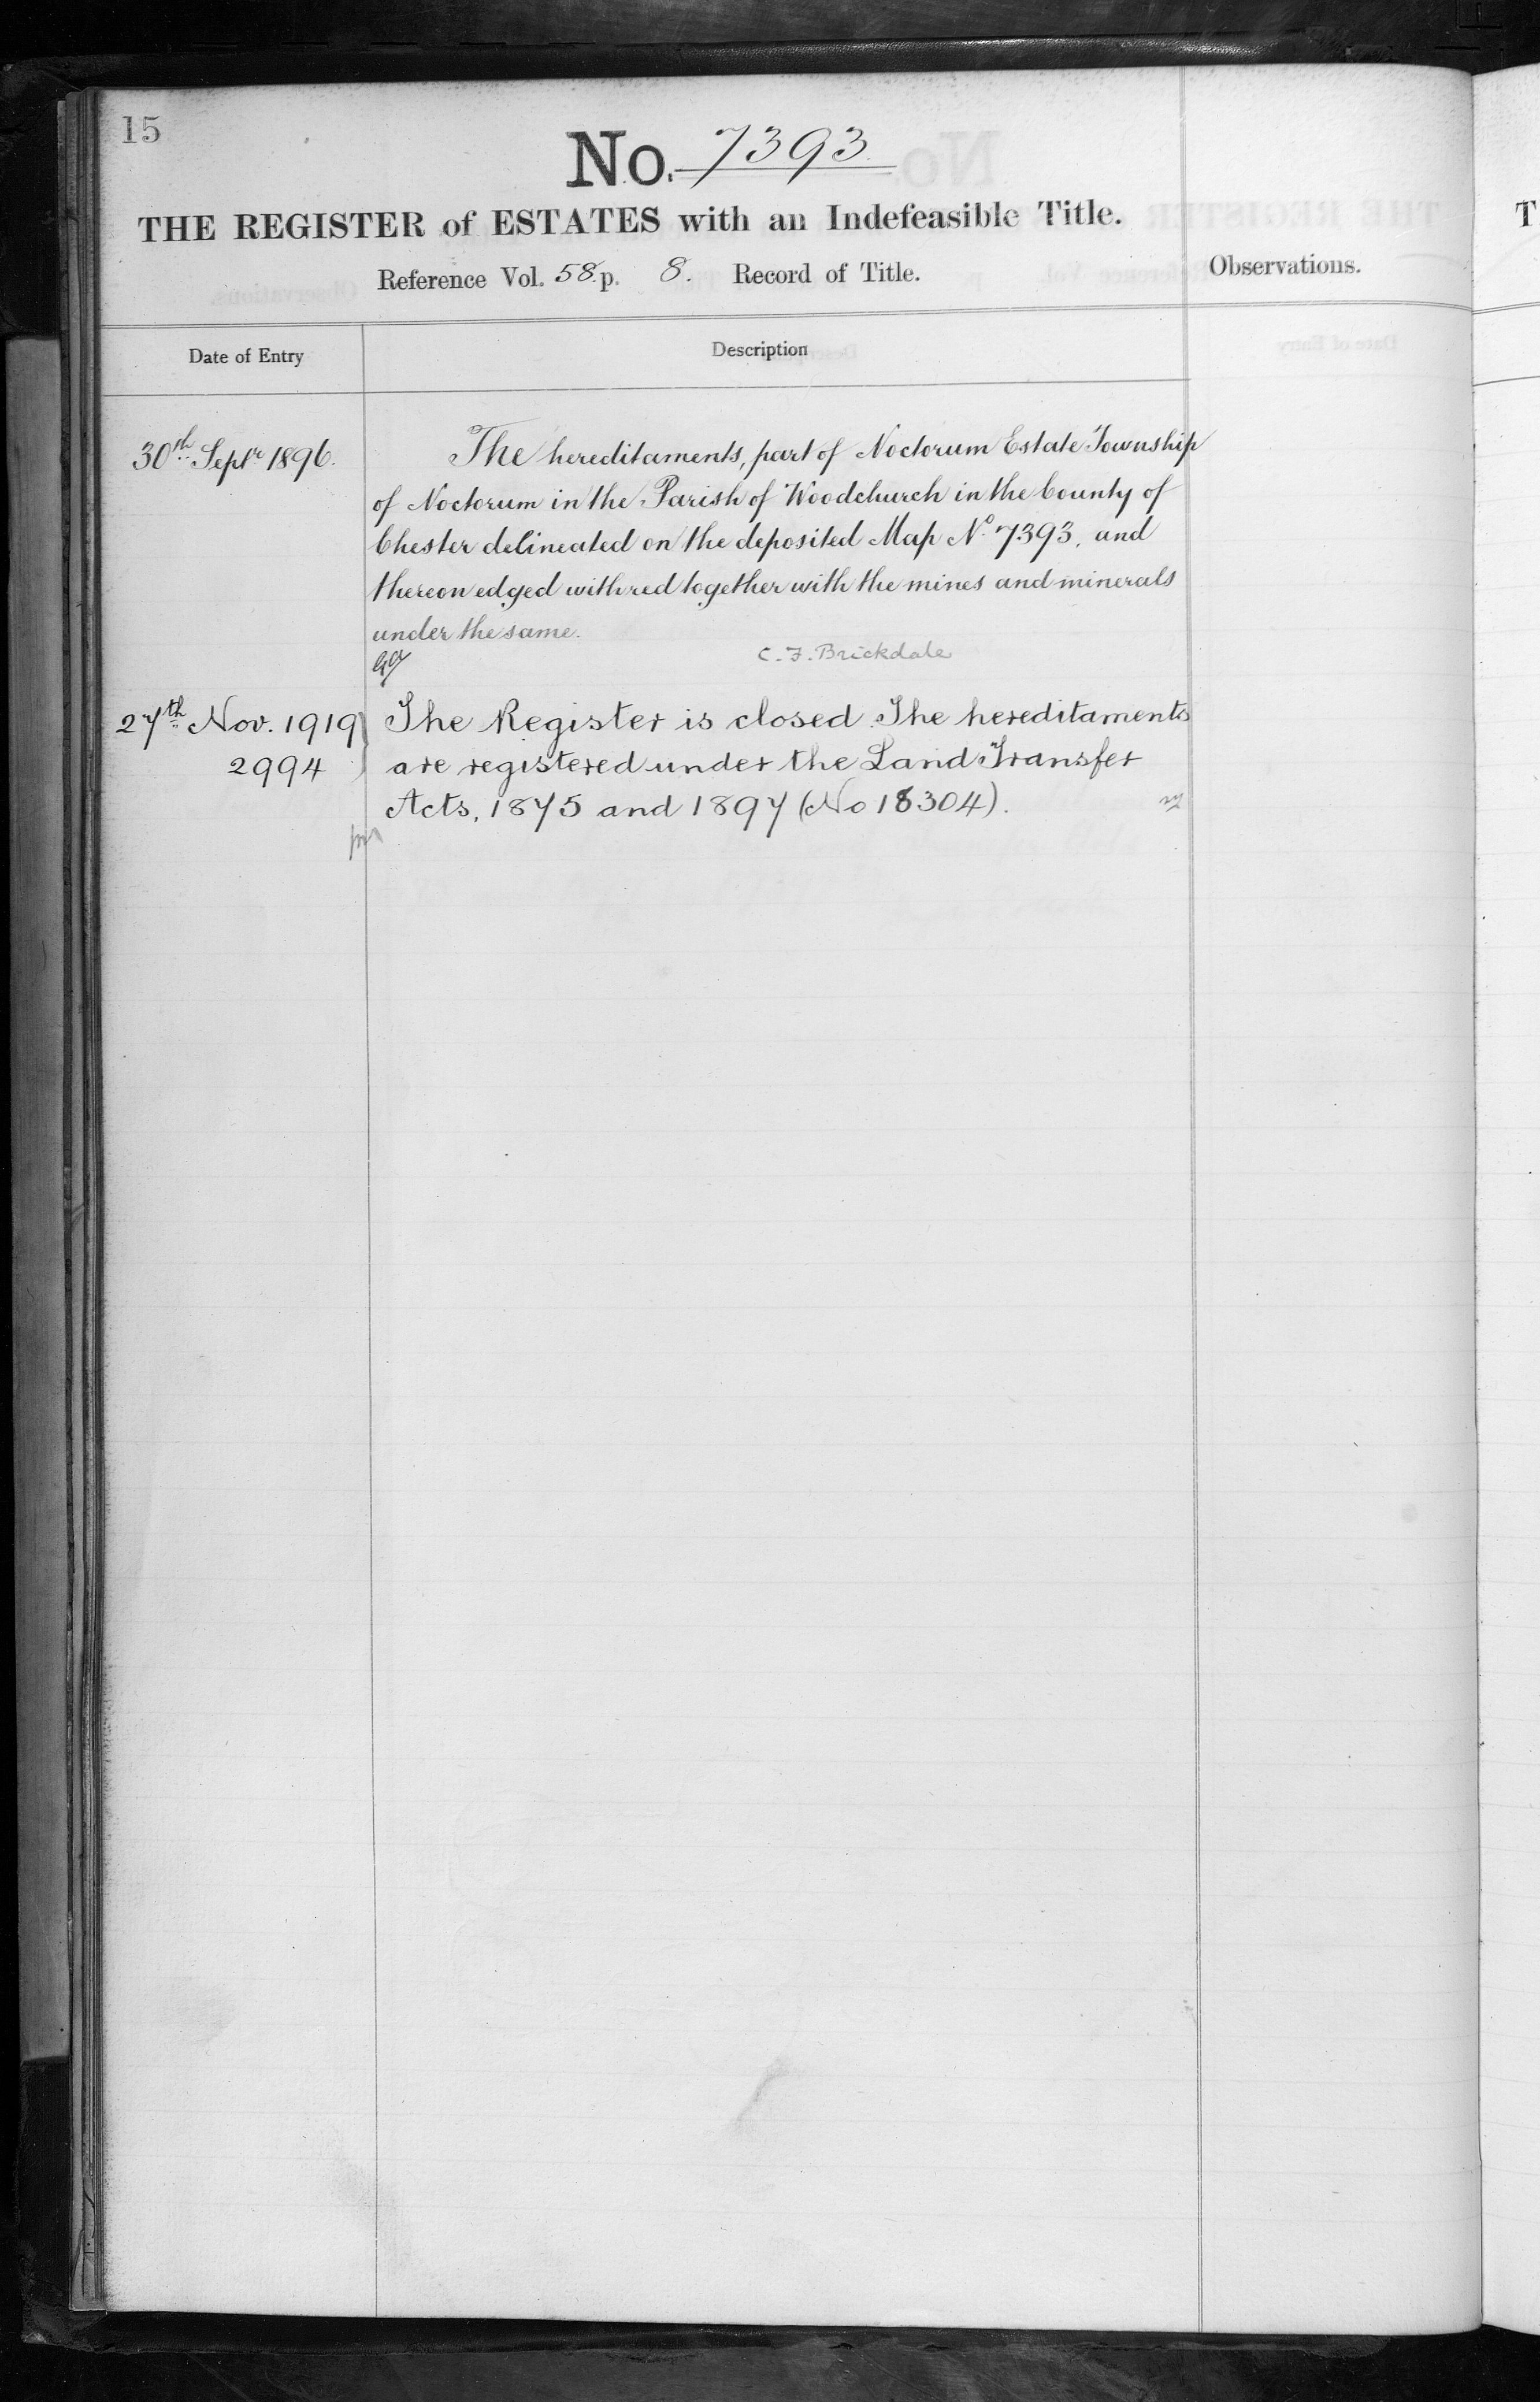 15
No. 7393.
THE REGISTER of ESTATES with an Indefeasible Title.
Reference Vol. 58. p. 8. Record of Title.
Observations.
Date of Entry
Description
30th Septr 1896.
The hereditaments, part of Noctorum Estate Township
of Noctorum in the Parish of Woodchurch in the County of
Chester delineated on the deposited Map No. 7393, and
thereon edged with red together with the mines and minerals
under the same.
C. F. Brickdale
27th Nov. 1919
2994
The Register is closed. The hereditaments
are registered under the Land Transfer
Acts, 1875 and 1897 (No 18304).
T